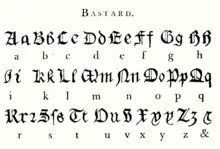 BASTARD.
Aa Bb Cc Dd Ee Ff Gg Hh
a b c d e f g h
Ii Kk Ll Mm Nn Oo Pp Qq
i k l m n o p q
Rr2 Sſs Tt Uu Xx Yy Zz &
r s t u x y z &